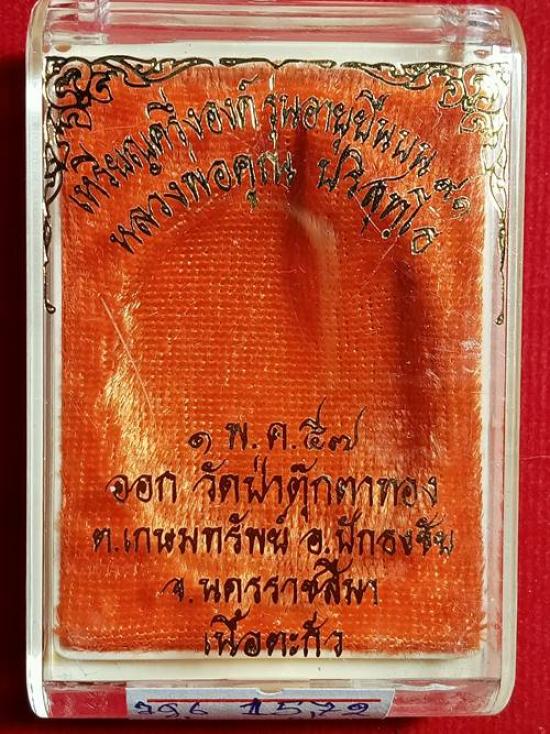 เหรียญครึ่งองค์ รุ่นอายุยืนบน ๙๑
หลวงพ่อคูณ ปริสุทฺโธ
๑ พ.ค.๕๗
ออก วัดป่าตุ๊กตาทอง
ต.เกษมทรัพย์ อ.ปักธงชัย
จ.นครราชสีมา
เนื้อตะกั่ว
1572